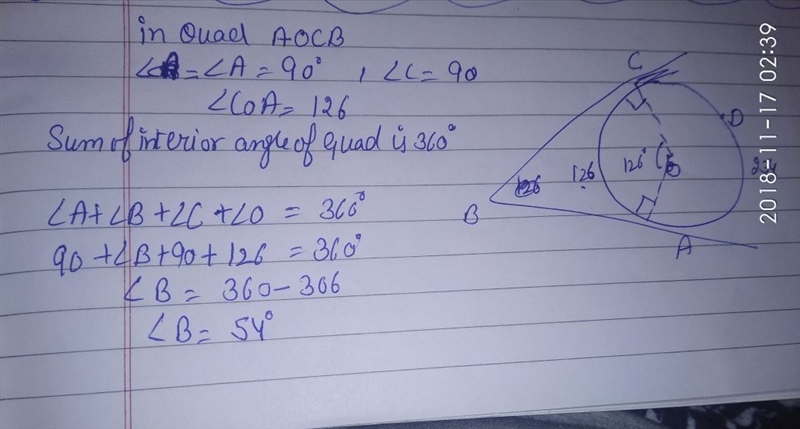 in Quad AOCB
= ∠A = 90° , ∠C = 90
∠COA = 126
Sum of interior angle of Quad is 360°
∠A + ∠B + ∠C + ∠O = 360°
90 + ∠B + 90 + 126 = 360°
∠B = 360 - 306
∠B = 54°
C
D
126°
126
126
B
A
2018-11-17 02:39